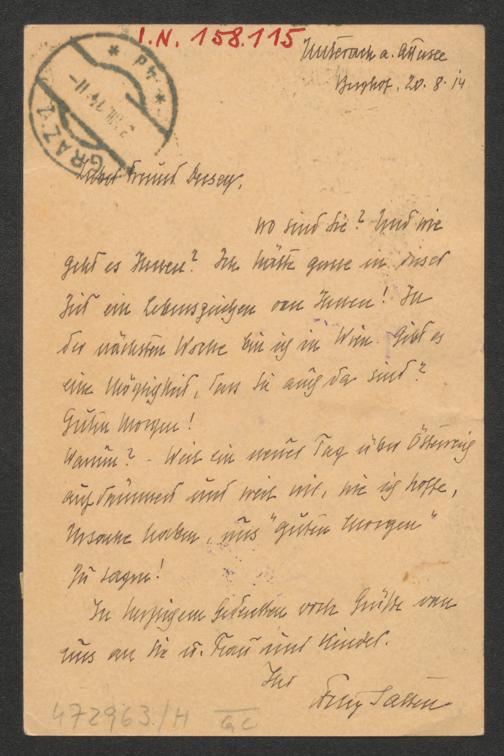 I.N. 158.115
GRAZ 1
Unterach a. Attersee
Berghof. 20. 8. 14
Lieber Freund Decsey,
wo sind Sie? Und wie
geht es Ihnen? Ich hätte gerne in dieser
Zeit ein Lebenszeichen von Ihnen! In
der nächsten Woche bin ich in Wien. Gibt es
eine Möglichkeit, dass Sie auch da sind?
Guten Morgen!
Warum? - Weil ein neuer Tag über Österreich
aufdämmert und weil wir, wie ich hoffe,
Ursache haben, uns "guten Morgen"
zu sagen!
In herzigem Gedenken viele Grüße von
uns an Sie u. Frau und Kinder.
Ihr
Felix Salten
472963/H GC